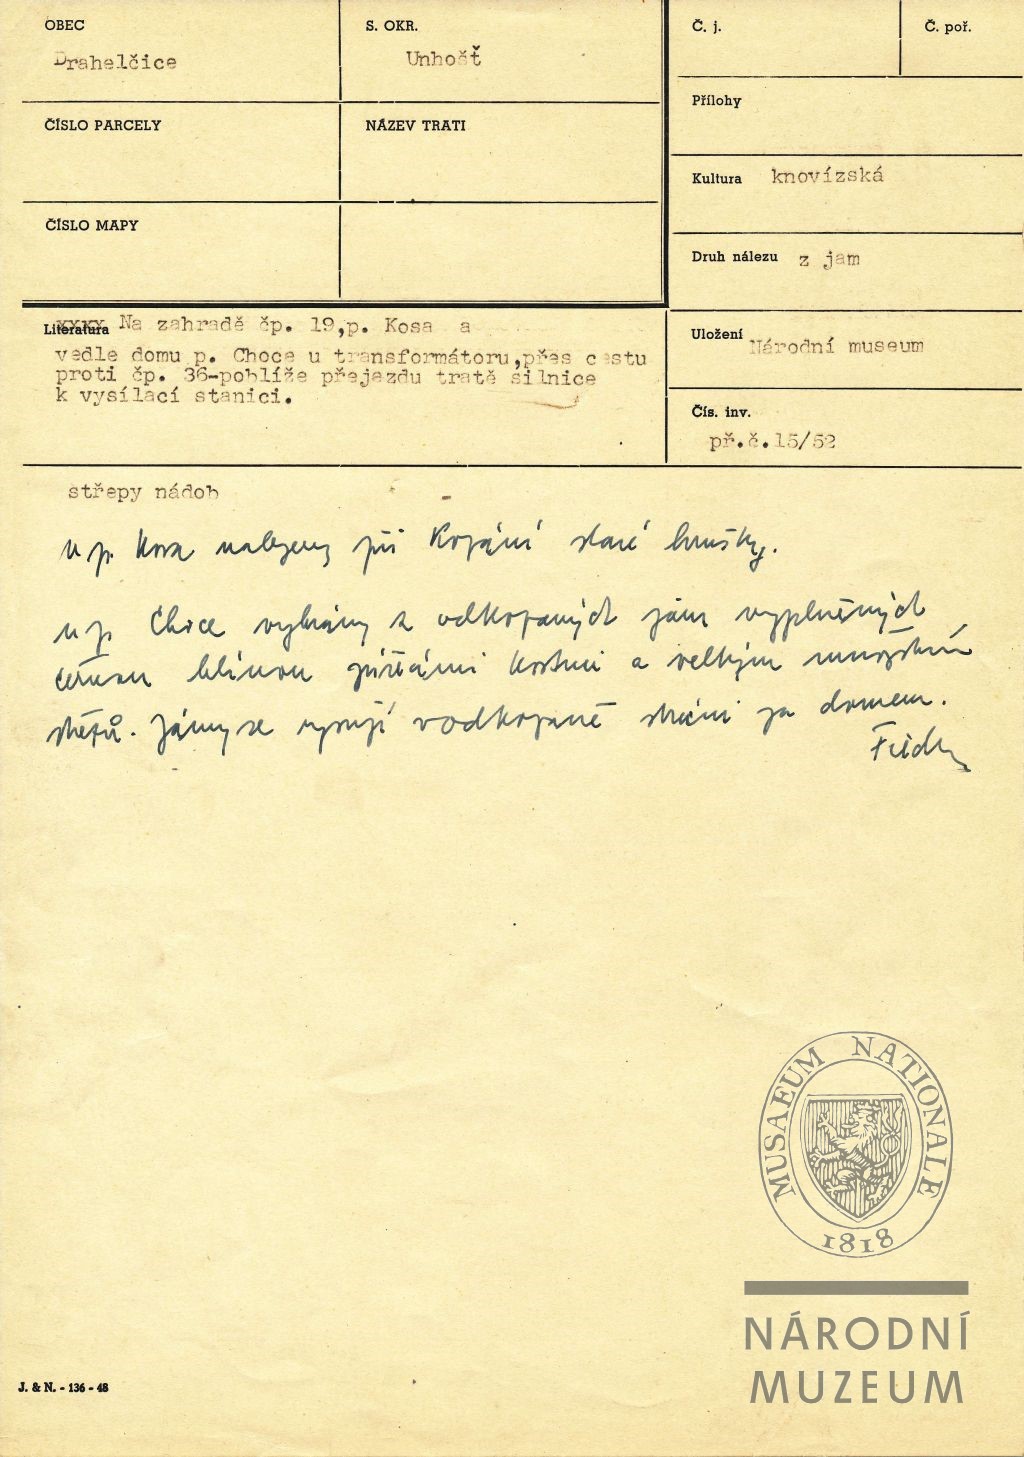 OBEC
Drahelčice
S. OKR.
Unhošť
Č. j.
Č. poř.
Přílohy
ČÍSLO PARCELY
NÁZEV TRATI
Kultura knovízská
ČÍSLO MAPY
Druh nálezu z jam
Literatura Na zahradě čp. 19,p. Kosa a
vedle domu p. Choce u transformátoru,přes cestu
proti čp. 36-poblíže přejezdu tratě silnice
k vysílací stanici.
Uložení Národní museum
Čís. inv.
př.č.15/52
střepy nádob
u p. Kosa nalezeny při kopání staré hrušky.
u p. Choce vybrány z odkopaných jam vyplněných
černou hlínou zvířecími kostmi a velkým množstvím
střepů. Jámy se rýsují v odkopané stěně za domem.
MUSAEUM NATIONALE
1818
NÁRODNÍ
MUZEUM
J. & N. - 136 - 48